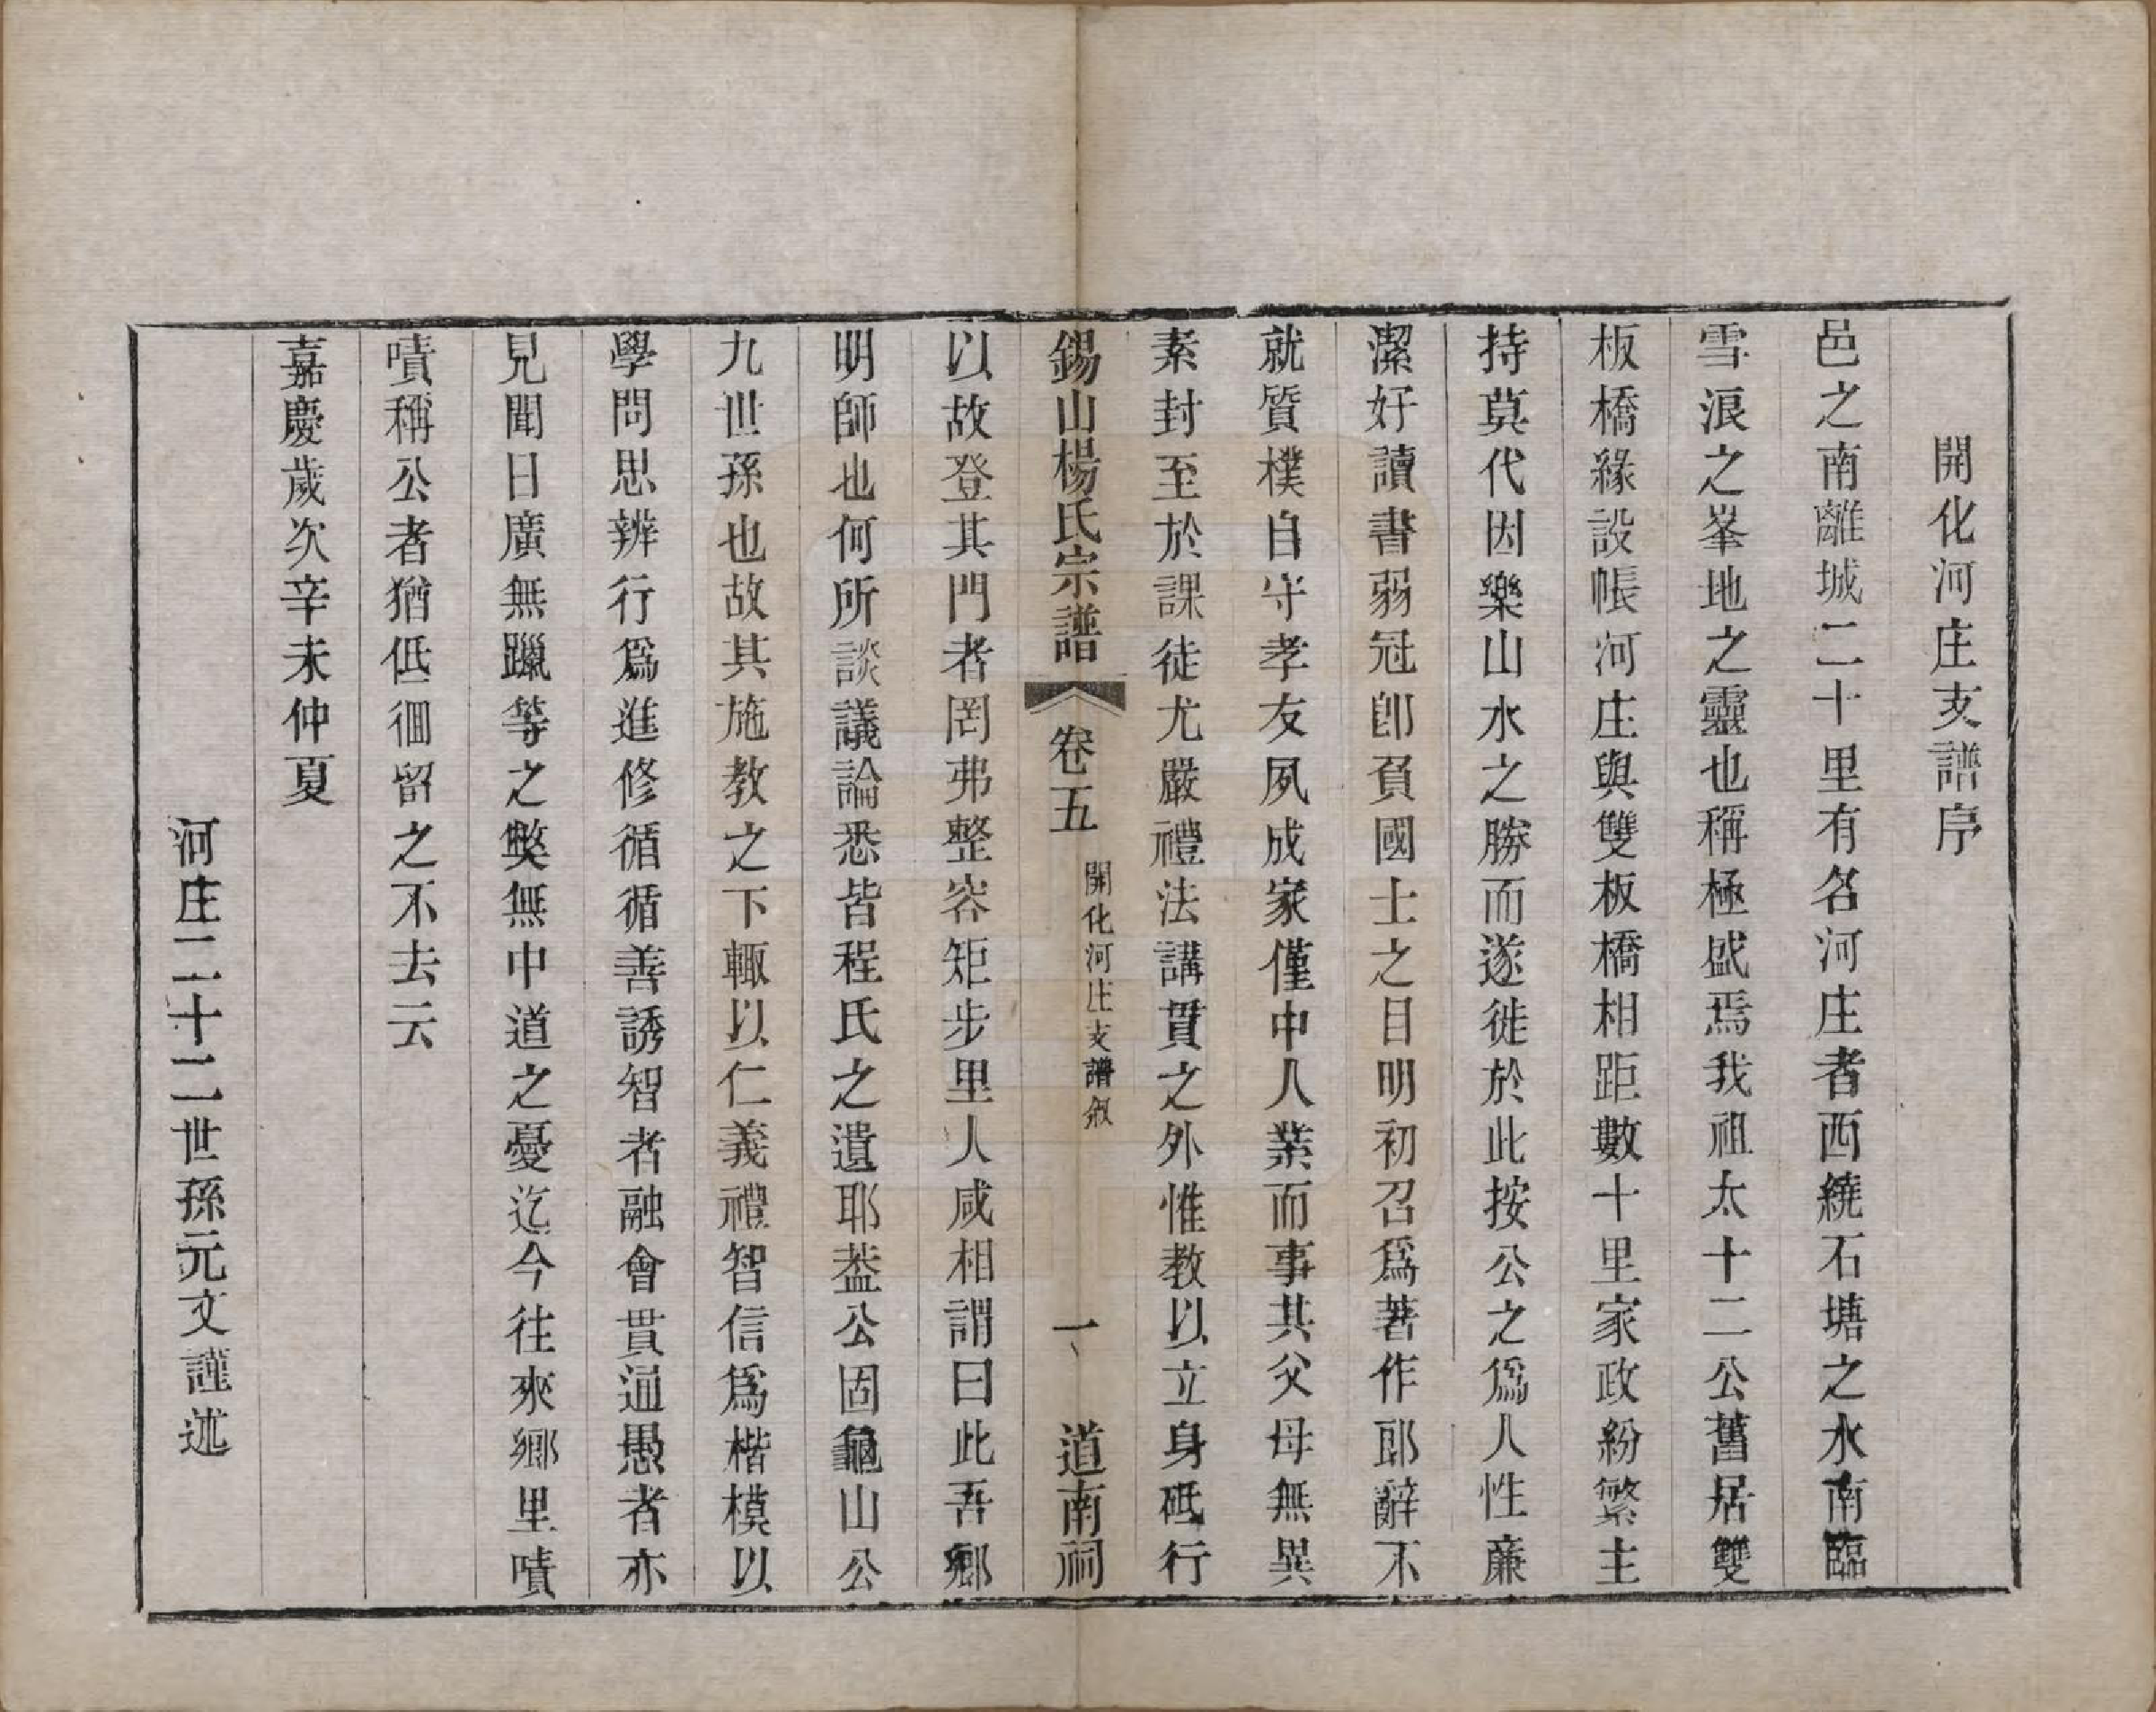 開化河庄支譜序
邑之南離城二十里有名河庄者西繞石塘之水南臨
雪浪之峯地之靈也稱極盛焉我祖太十二公舊居雙
板橋緣設帳河庄與雙板橋相距數十里家政紛繁主
持莫代因樂山水之勝而遂徙於此按公之爲人性廉
潔好讀書弱冠卽負國士之目明初召爲著作郎辭不
就質樸自守孝友夙成家僅中人業而事其父母無異
素封至於課徒尤嚴禮法講貫之外惟教以立身砥行
錫山楊氏宗譜 卷五 開化河庄支譜叙 一 道南祠
以故登其門者罔弗整容矩步里人咸相謂曰此吾鄉
明師也何所談議論悉皆程氏之遺耶葢公固龜山公
九世孫也故其施教之下輒以仁義禮智信爲楷模以
學問思辨行爲進修循循善誘智者融會貫通愚者亦
見聞日廣無躐等之獘無中道之憂迄今往來鄉里嘖
嘖稱公者猶低徊留之不去云
嘉慶歲次辛未仲夏
河庄二十二世孫元文謹述